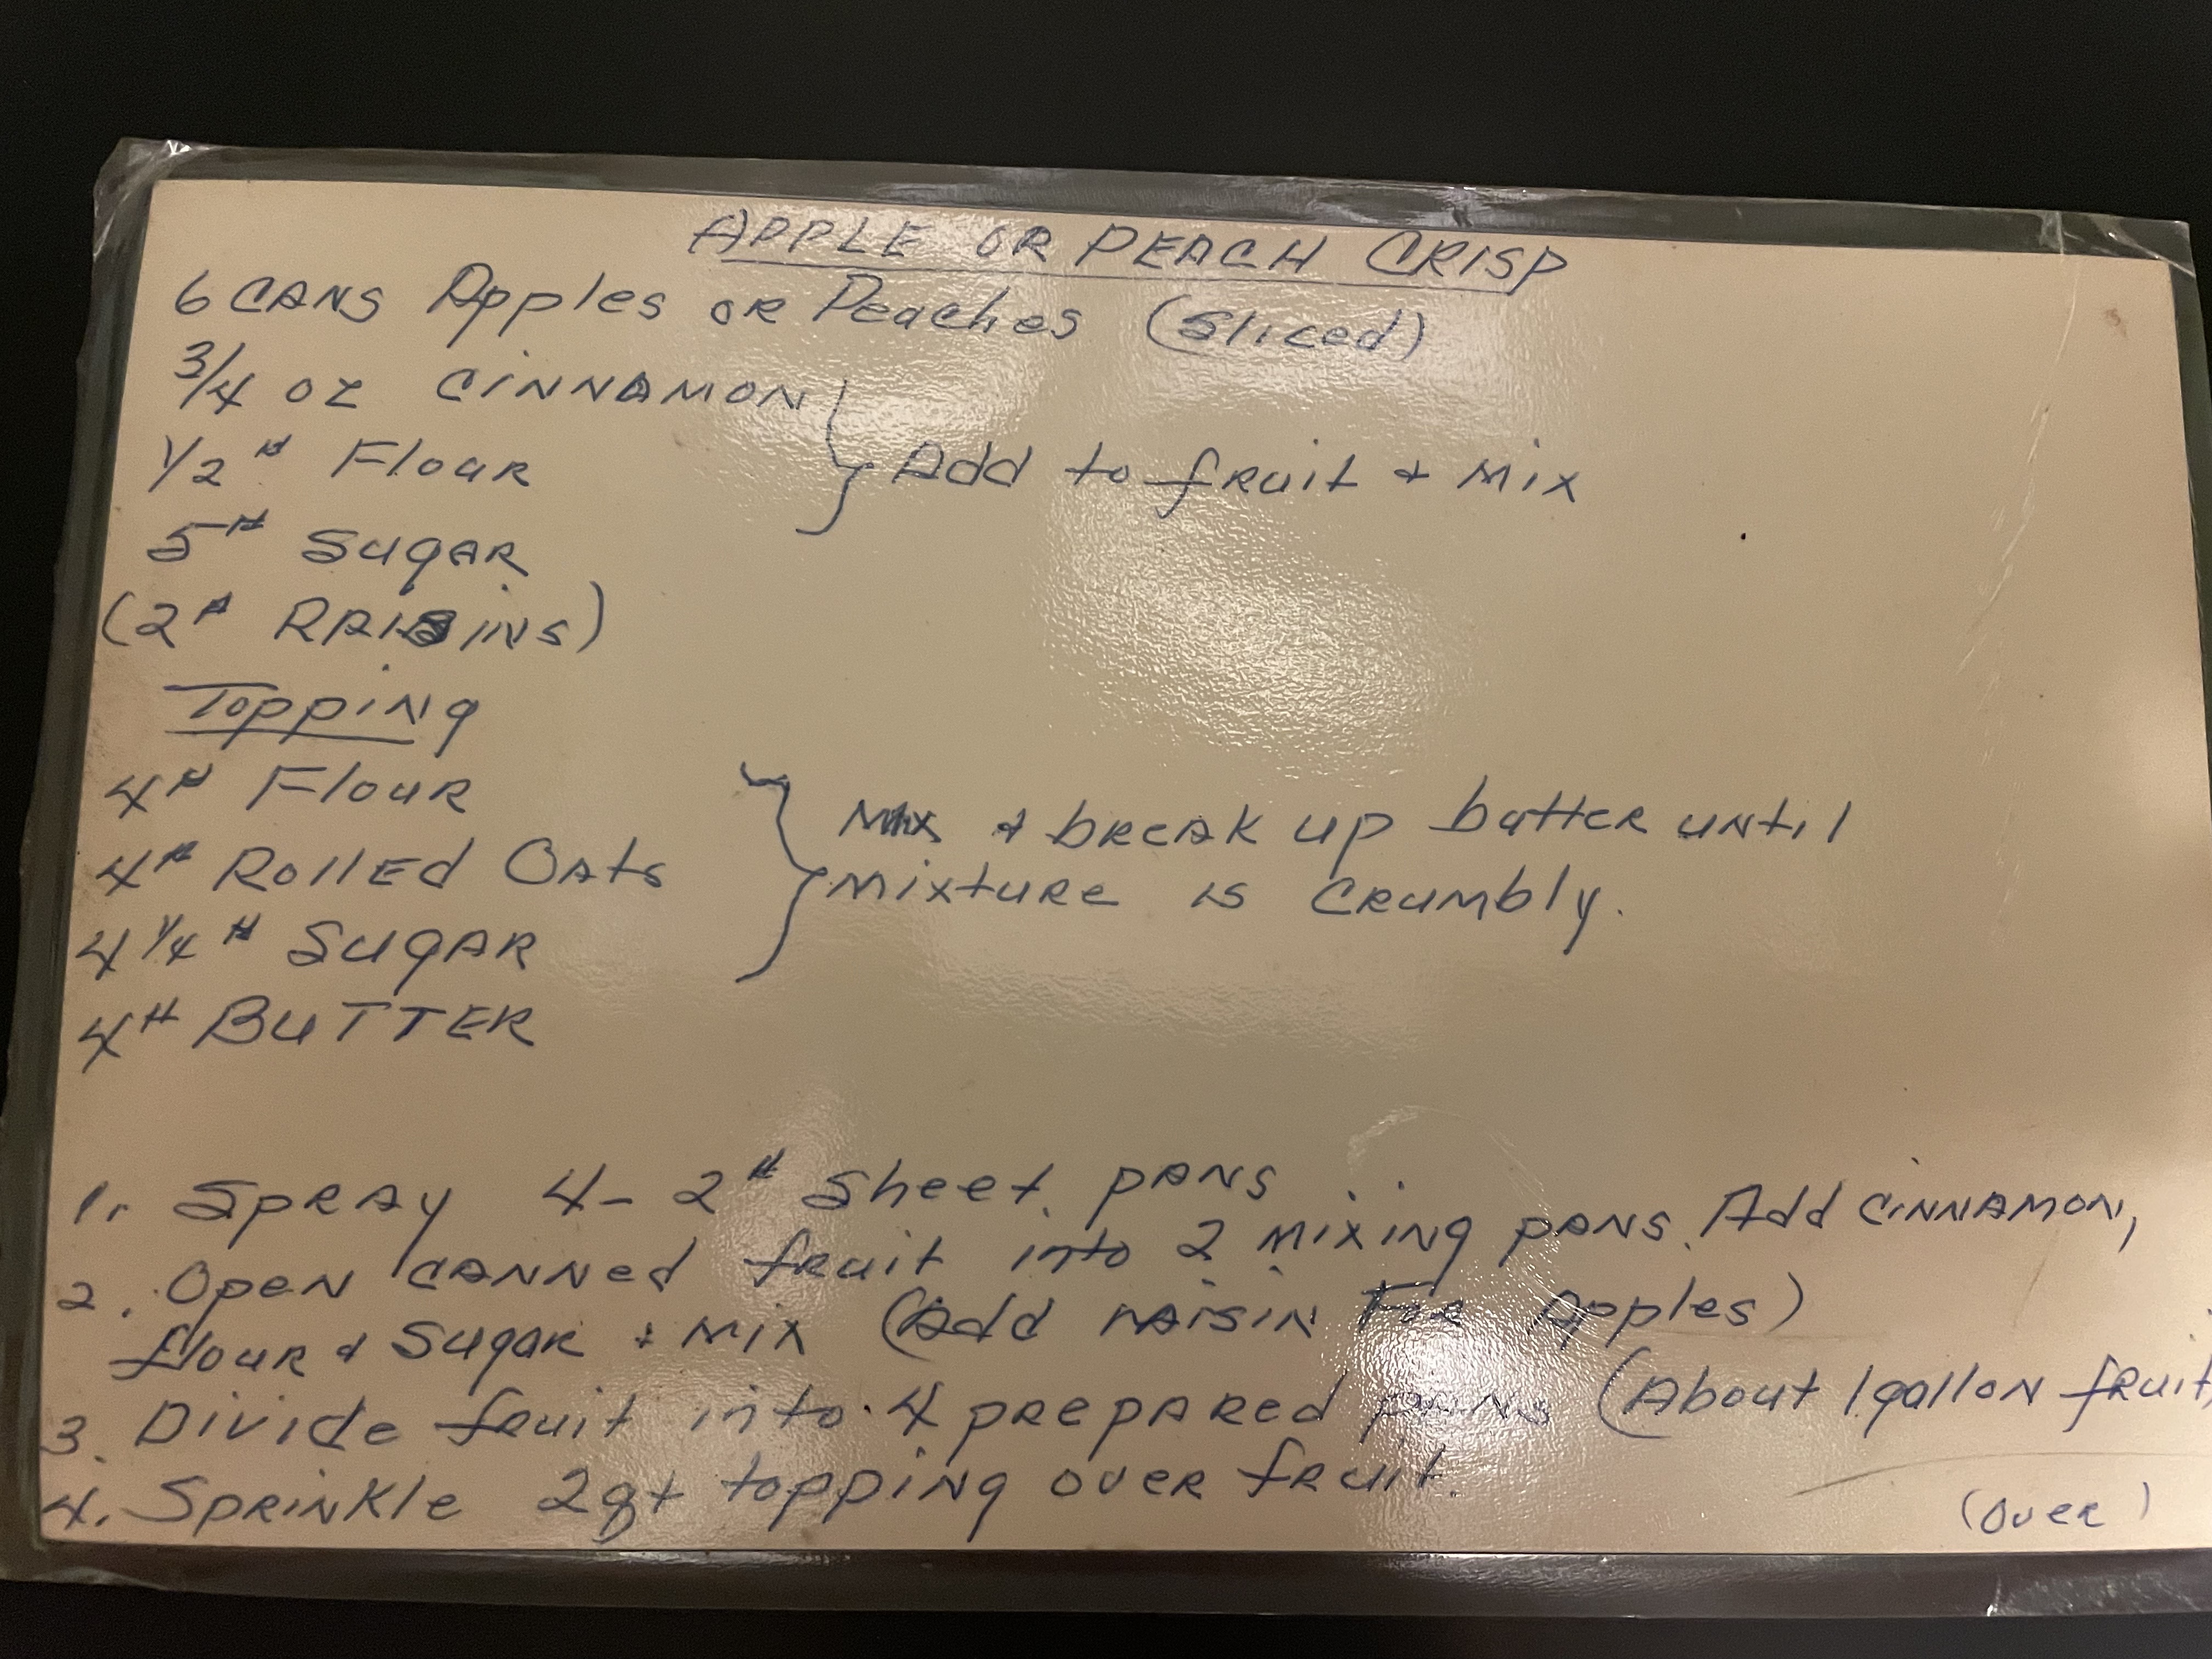 APPLE OR PEACH CRISP
6 CANS Apples OR Peaches (Sliced)
3/4 oz CINNAMON
1/2 # Flour
Add to fruit & Mix
5# Sugar
(2# RAISINS)
Topping
4# Flour
4# Rolled Oats
4 1/4 # Sugar
4# BUTTER
Mix & break up butter until
mixture is crumbly.
1. Spray 4- 2# Sheet pans
2. Open canned fruit into 2 mixing pans. Add cinnamon,
flour & Sugar & Mix (Add raisin For Apples)
3. Divide fruit into 4 prepared pans (About 1 gallon fruit)
4. Sprinkle 2qt topping over fruit.
(over)